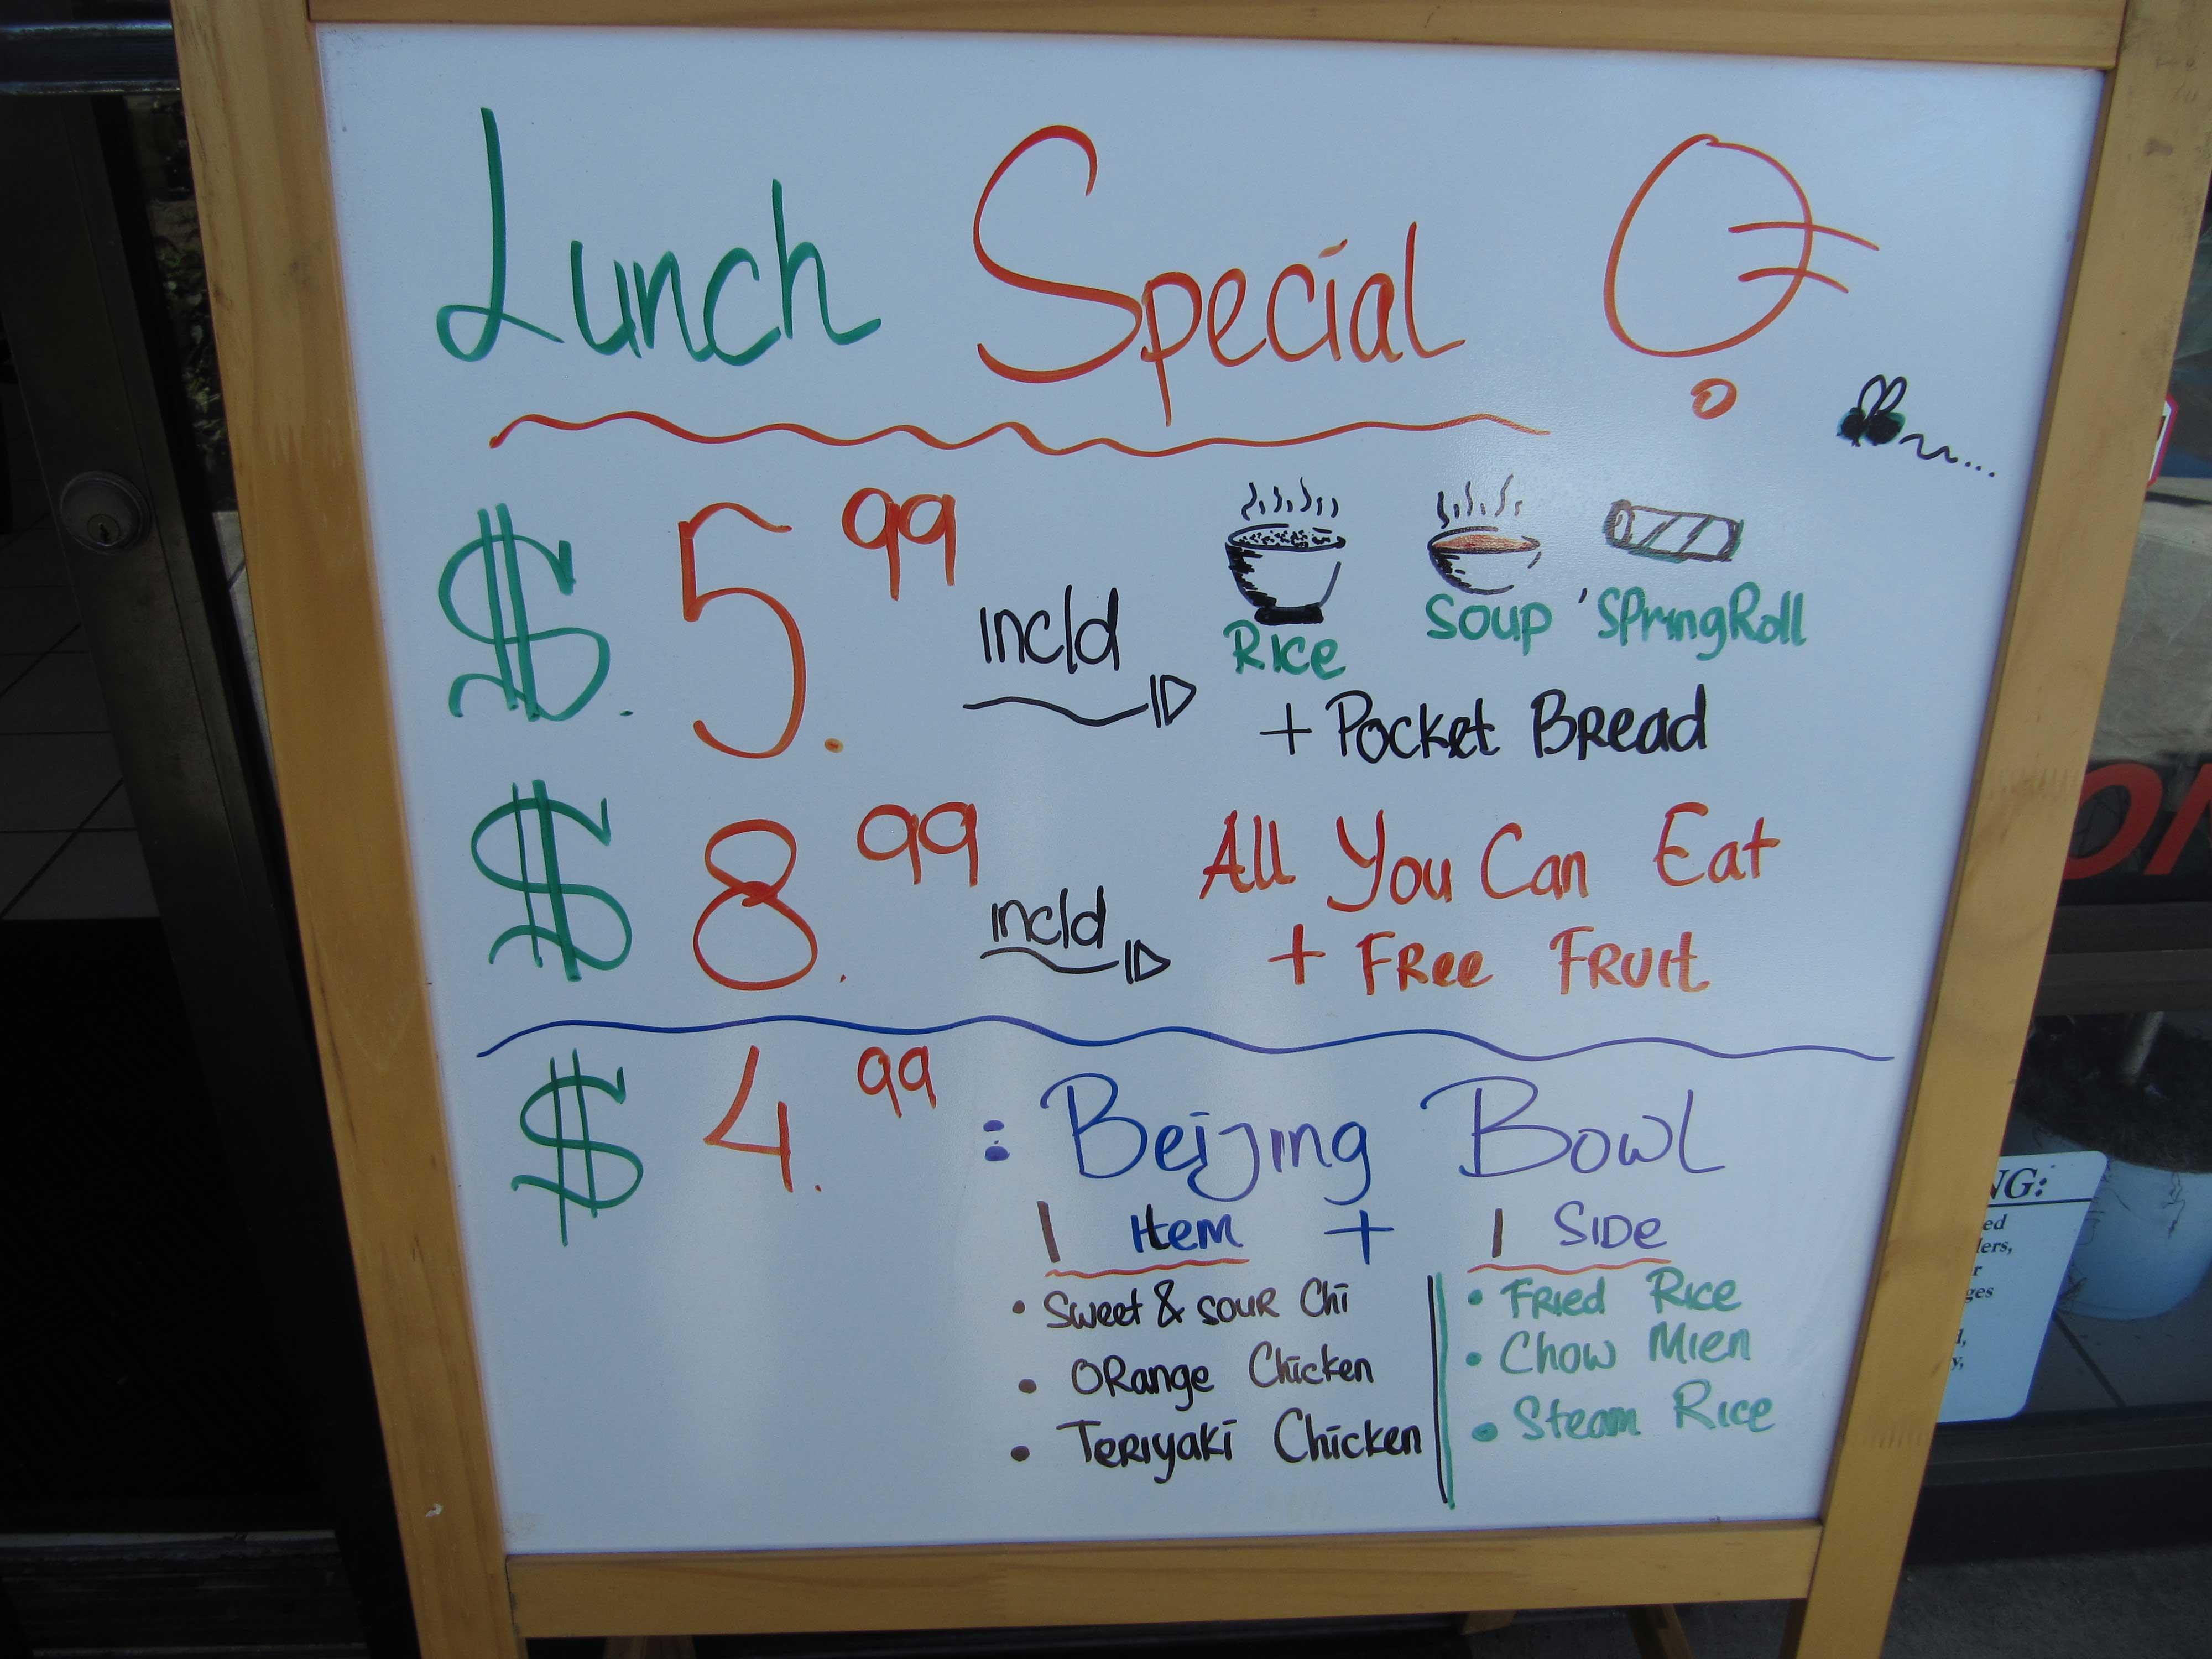 Lunch Special
$. 5.99 incld Rice Soup 'Spring Roll
+ Pocket Bread
$ 8.99 incld All You Can Eat
+ Free Fruit
$ 4.99 : Beijing Bowl
1 Item + 1 Side
• Sweet & Sour Chi
• Orange Chicken
• Teriyaki Chicken
• Fried Rice
• Chow Mien
• Steam Rice
NG: